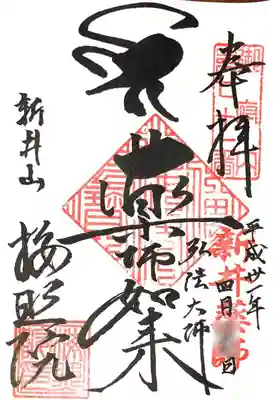 奉拝
平成廿一年
四月 日
新井薬師
弘法大師
薬師如来
新井山
梅照院